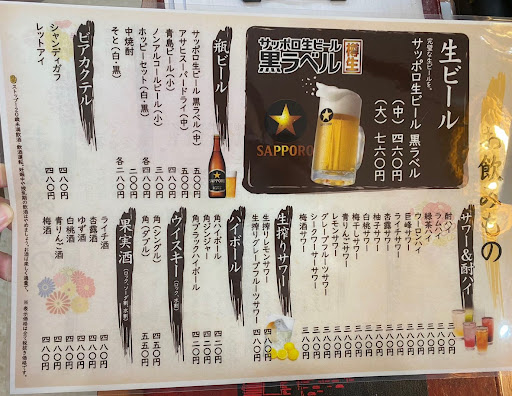 お飲みもの
生ビール
完璧な生ビールを。
サッポロ生ビール 黒ラベル
(中) 四六〇円
(大) 七六〇円
サッポロ生ビール
黒ラベル
樽生
SAPPORO
瓶ビール
サッポロ生ビール 黒ラベル(中) 五〇〇円
アサヒスーパードライ(中) 五〇〇円
青島ビール(小) 四八〇円
ノンアルコールビール(小) 三八〇円
ホッピーセット(白・黒) 各四八〇円
中焼酎 二〇〇円
そと(白・黒) 各二八〇円
ビアカクテル
シャンディガフ 四八〇円
レッドアイ 四八〇円
サワー&酎ハイ
酎ハイ 三八〇円
ラムハイ 三八〇円
緑茶ハイ 三八〇円
ウーロンハイ 三八〇円
巨峰サワー 三八〇円
ライチサワー 三八〇円
杏露サワー 三八〇円
柚子サワー 三八〇円
白桃サワー 三八〇円
梅干しサワー 三八〇円
青りんごサワー 三八〇円
レモンサワー 三八〇円
グレープフルーツサワー 三八〇円
シークワーサーサワー 三八〇円
梅酒サワー 三八〇円
生搾りサワー
生搾りレモンサワー 四八〇円
生搾りグレープフルーツサワー 四八〇円
ハイボール
角ハイボール 四二〇円
角ジンジャー 四二〇円
角ブラックハイボール 四二〇円
ウィスキー(ロック、水割)
角(シングル) 四五〇円
角(ダブル) 五五〇円
果実酒(ロック、ソーダ割、水割)
ライチ酒 四八〇円
杏露酒 四八〇円
ゆず酒 四八〇円
白桃酒 四八〇円
青りんご酒 四八〇円
梅酒 四八〇円